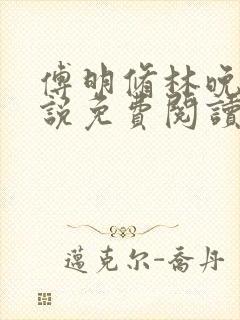 傅明脩林晚
說免費閱讀
邁克尔-喬丹